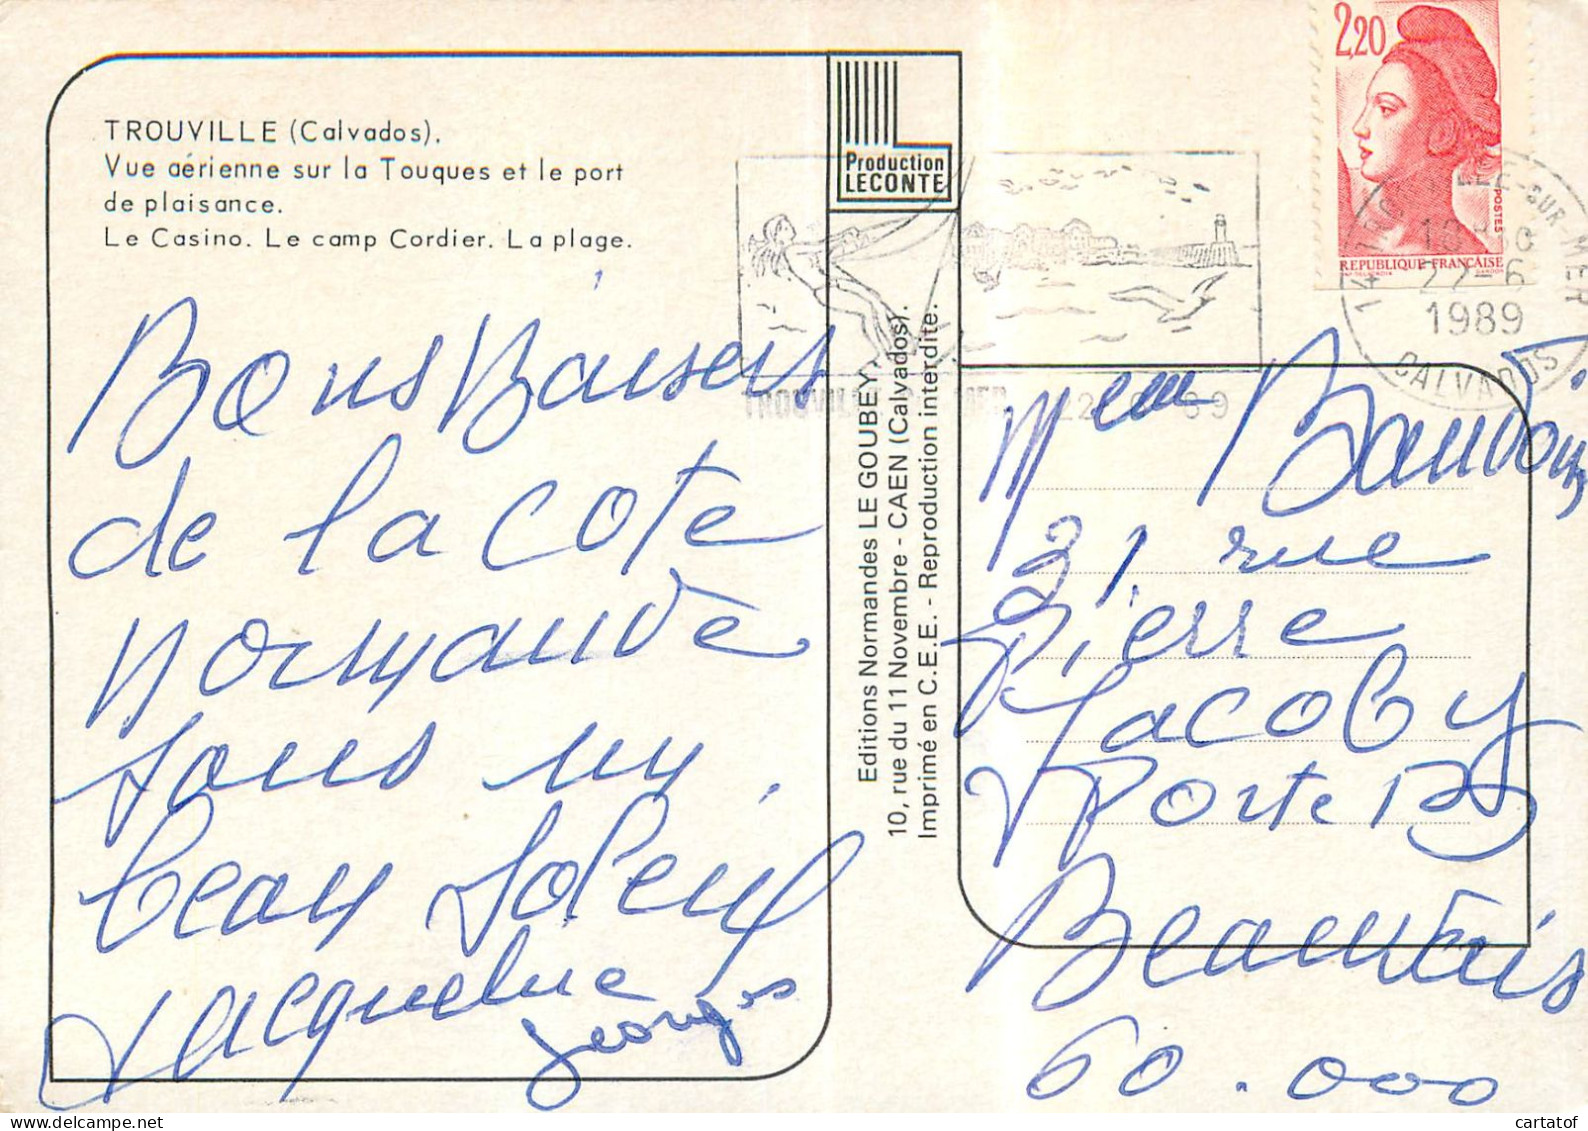 TROUVILLE (Calvados).
Vue aérienne sur la Touques et le port
de plaisance.
Le Casino. Le camp Cordier. La plage.
Bons Baisers
de la cote
normande
sous un
beau soleil
Jacqueline
Georges
Production
LECONTE
Editions Normandes LE GOUBEY
10, rue du 11 Novembre - CAEN (Calvados).
Imprimé en C.E.E. - Reproduction interdite.
2,20
POSTES
REPUBLIQUE FRANÇAISE
SUR-MER
27-6
1989
CALVADOS
Mme Baudoin
21. rue
Pierre
Jacoby
Porte B
Beauvais
60.000
cartatof